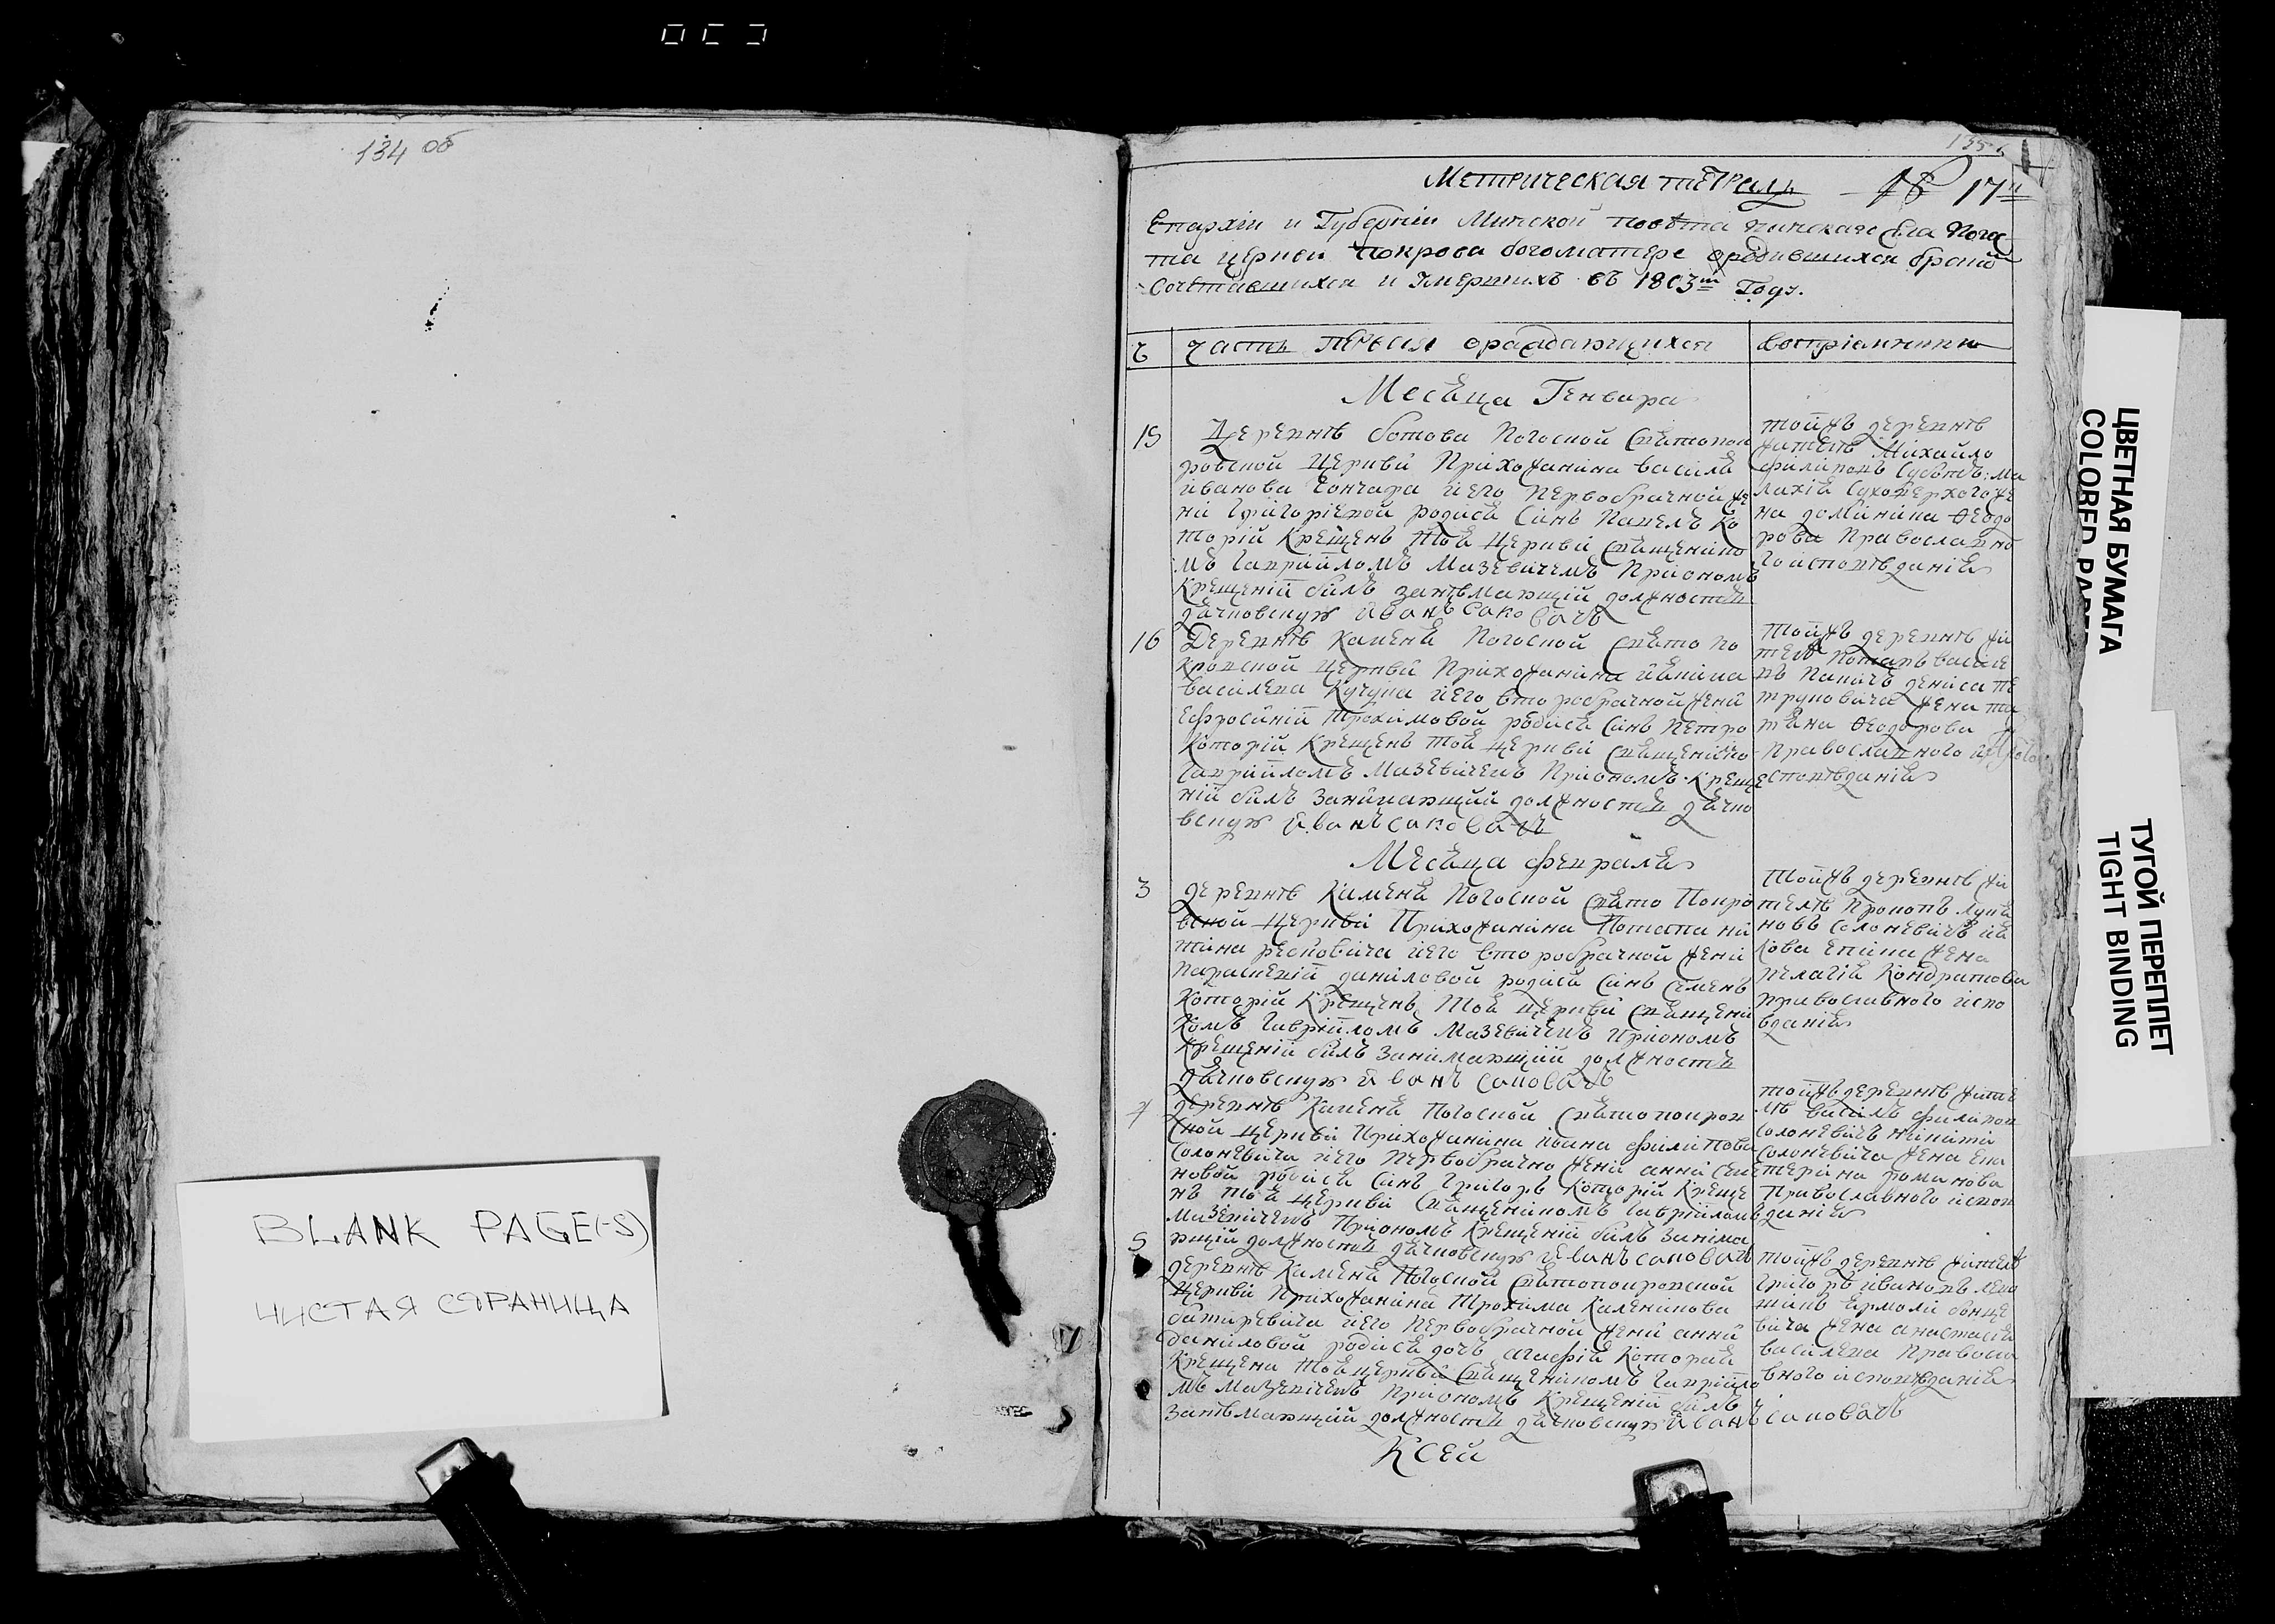 134 об
BLANK PAGE(-S)
ЧИСТАЯ СТРАНИЦА
135
Метрическая тетрадь № 17й
Епархіи и Губерніи Минской повѣта пинскаго села Погос
та церкви Покрова богоматере ородившихся браком
Сочетавшихся и Умершихъ въ 1803м Году.
Ч Часть первая ораждающихся
воспріемники
Месѣца Генвара
15 Деревнѣ ботова Погосной Свѣтопок
ровской Церкви Прихожанина василѣ
иванова Гончара иего Первобрачной же
ни Григоріевой родисѣ Синъ Павелъ Ко
торій Крещенъ Тоѣ Церкви Свѣщенико
мъ Гавріиломъ Мазевичемъ Приономъ
Крещеніи билъ занѣмающій должность
дѣчковскую иванъ Саковичъ
тойжъ деревнѣ
жителѣ Михайло
филиповъ
лахіѣ Сухо же
на домникиа Феодо
рова Православно
го исповѣданіѣ
16 Деревнѣ Каменѣ Погосной Свѣто по
кровской Церкви Прихожанина
василева иего второбрачной жени
Ефросиніи Трохимовой родисѣ Синъ Петро
Которій Крещенъ Тоѣ церкви Свѣщенико
Гавріиломъ Мазевичемъ Приономъ Креще
ніи билъ Занимающій должность дѣчко
вскую иванъ Саковичъ
Тойжъ деревнѣ жи
тель васи
дениса пе
тровича жена та
тѣна Феодорова
Православного
исповѣданіѣ
Месѣца февралѣ
3 деревнѣ Каменѣ Погосной Свѣто Покро
вской Церкви Прихожанина Потапа
иего второбрачной жени
Параскевіи даниловой родисѣ Синъ Семенъ
Которій Крещенъ Тоѣ Церкви Свѣщени
комъ Гавріиломъ Мазевичемъ Приономъ
Крещеніи билъ Занимающій должность
дѣчковскую иванъ Саковичъ
Тойжъ деревнѣ жи
телѣ Прокопъ Лукѣ
новъ Солоневичъ
жена
пелагіѣ Кондратова
православного испо
вданіѣ
4 деревнѣ Каменѣ Погосной Свѣтопокров
ской церкви Прихожанина иоана филипова
Солоневича иего первобрачно жени анни
новой родисѣ Синъ Григоръ Которій Креще
нъ Тоѣ церкви Свѣщеникомъ Гавріиломъ
Мазевичемъ Приономъ Крещеніи билъ Занима
ющій должность дѣчковскую иванъ Саковичъ
тойжъ деревнѣ жите
лѣ василъ филипов
Солоневичъ никити
Солоневича жена Ека
терина романова
Православного испов
даніѣ
5 деревнѣ Каменѣ Погосной Свѣтопокровской
Церкви Прихожанина Трохима Каленикова
иего первобрачной жени анни
даниловой родисѣ дочъ агафіѣ Котораѣ
Крещена Тоѣ церкви Свѣщеникомъ Гавріило
мъ Мазевичемъ Приономъ Крещеніи билъ
Занѣмающій должность дѣчковскую иванъ Саковичъ
тойжъ деревнѣ жителѣ
Григоръ ивановъ
ермоли
вича жена анастасіѣ
василева Правосла
вного исповѣданіѣ
Ксей
ЦВЕТНАЯ БУМАГА
COLORED PAPER
ТУГОЙ ПЕРЕПЛЕТ
TIGHT BINDING